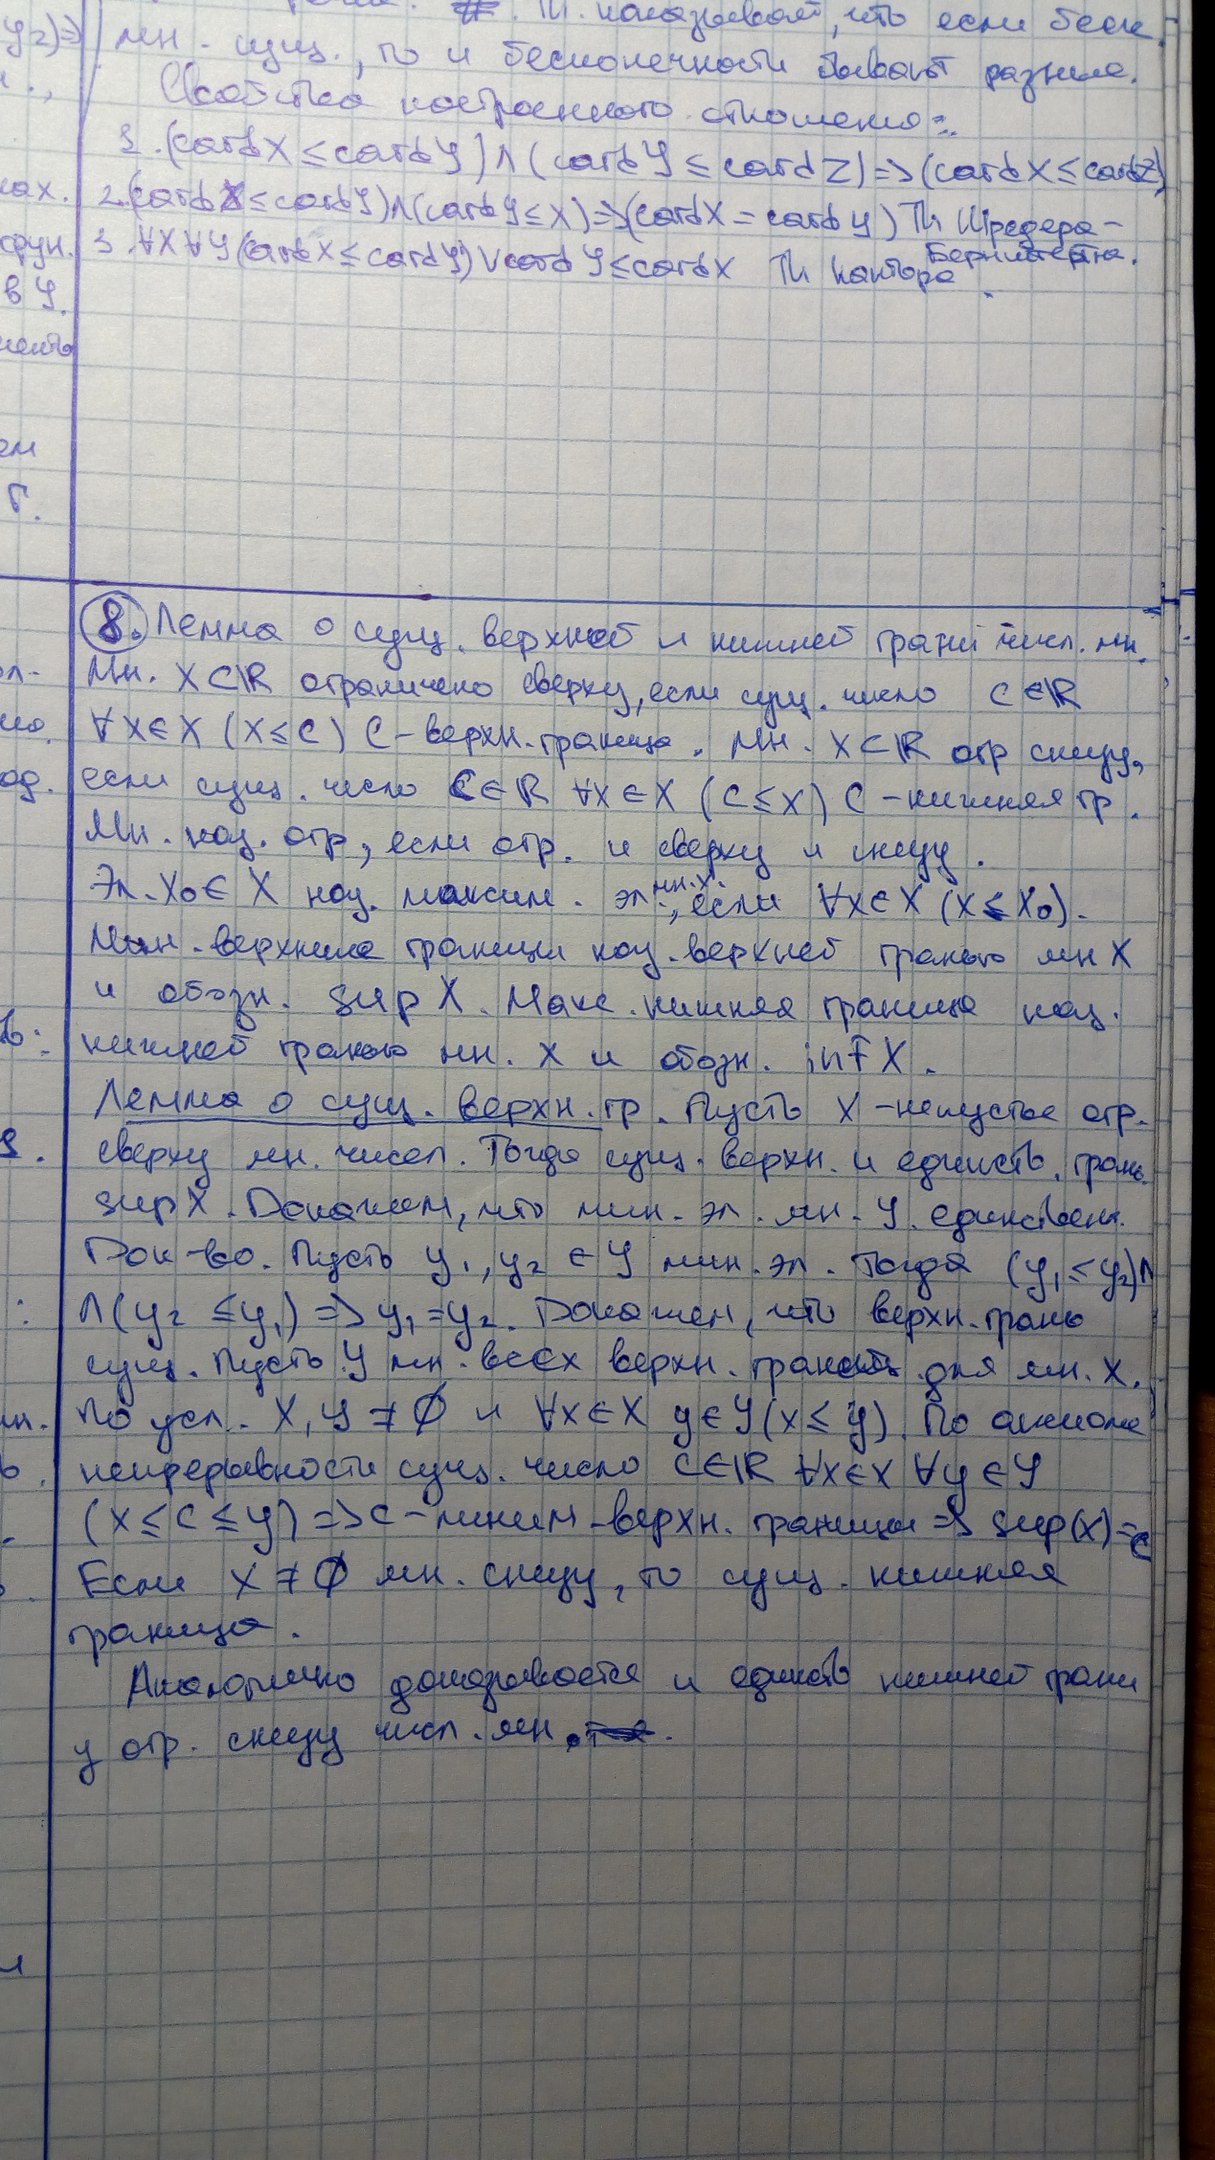 Th. показывает, что если беск.
мн. сущ., то и бесконечности бывают разные.
Свойства построенного отношения:
1. (card X ≤ card Y) ∧ (card Y ≤ card Z) => (card X ≤ card Z)
2. (card X ≤ card Y) ∧ (card Y ≤ X) => (card X = card Y) Th Шредера-
Бернштейна.
3. ∀X ∀Y (card X ≤ card Y) ∨ card Y ≤ card X Th Кантора.
y₂) =>
ках.
в Y.
ем
Г.
8. Лемма о сущ. верхней и нижней грани числ. мн.
Мн. X ⊂ ℝ ограничено сверху, если сущ. число C ∈ ℝ
∀x ∈ X (x ≤ C) C - верхн. граница. Мн. X ⊂ ℝ огр снизу,
если сущ. число C ∈ ℝ ∀x ∈ X (C ≤ x) C - нижняя гр.
Мн. наз. огр, если огр. и сверху и снизу.
Эл. X₀ ∈ X наз. максим. эл. мн. X, если ∀x ∈ X (x ≤ X₀).
Мин. верхняя граница наз. верхней гранью мн X
и обозн. sup X. Макс. нижняя граница наз.
нижней гранью мн. X и обозн. inf X.
Лемма о сущ. верхн. гр. Пусть X - непустое огр.
сверху мн. чисел. Тогда сущ. верхн. и единств. грань
sup X. Докажем, что мин. эл. мн. Y. единствен.
Док-во. Пусть y₁, y₂ ∈ Y мин. эл. Тогда (y₁ ≤ y₂) ∧
∧ (y₂ ≤ y₁) => y₁ = y₂. Докажем, что верхн. грань
сущ. Пусть Y мн. всех верхн. для мн. X.
По усл. X, Y ≠ ∅ и ∀x ∈ X y ∈ Y (x ≤ y). По аксиоме
непрерывности сущ. число C ∈ ℝ ∀x ∈ X ∀y ∈ Y
(x ≤ C ≤ y) => C - миним. верхн. граница => sup(X) = C
Если X ≠ ∅ мн. снизу, то сущ. нижняя
граница.
Аналогично доказывается и единств нижней грани
у огр. снизу числ. мн.